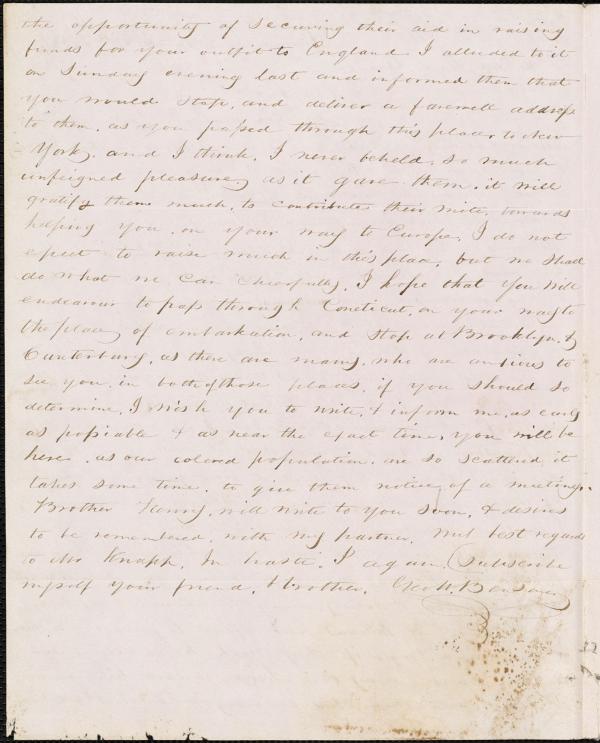 the opportunity of securing their aid in raising
funds for your outfit to England I alluded to it
on Sunday evening last and informed them that
you would stop, and deliver a farewell address
to them, as you passed through this place to New
York, and I think, I never beheld, so much
unfeigned pleasure, as it gave them. it will
gratify them much, to contribute their mite, towards
helping you, on your way to Europe, I do not
expect to raise much in this place, but we shall
do what we can cheerfully, I hope that you will
endeavour to pass through Coneticut, on your way to
the place of embarkation, and stop at Brooklyn, &
Canterbury, as there are many, who are anxious to
see you, in both of those places, if you should so
determine, I wish you to write, & inform me, as early
as possiable & as near the exact time, you will be
here, as our colored population, are so scatterd, it
takes some time, to give them notice, of a meeting.
Brother Henry, will write to you soon, & desires
to be remembered, with my partner, best regards
to Mr Knapp, In haste, I again, Subscribe
myself your friend, & brother, Geo. W. Benson